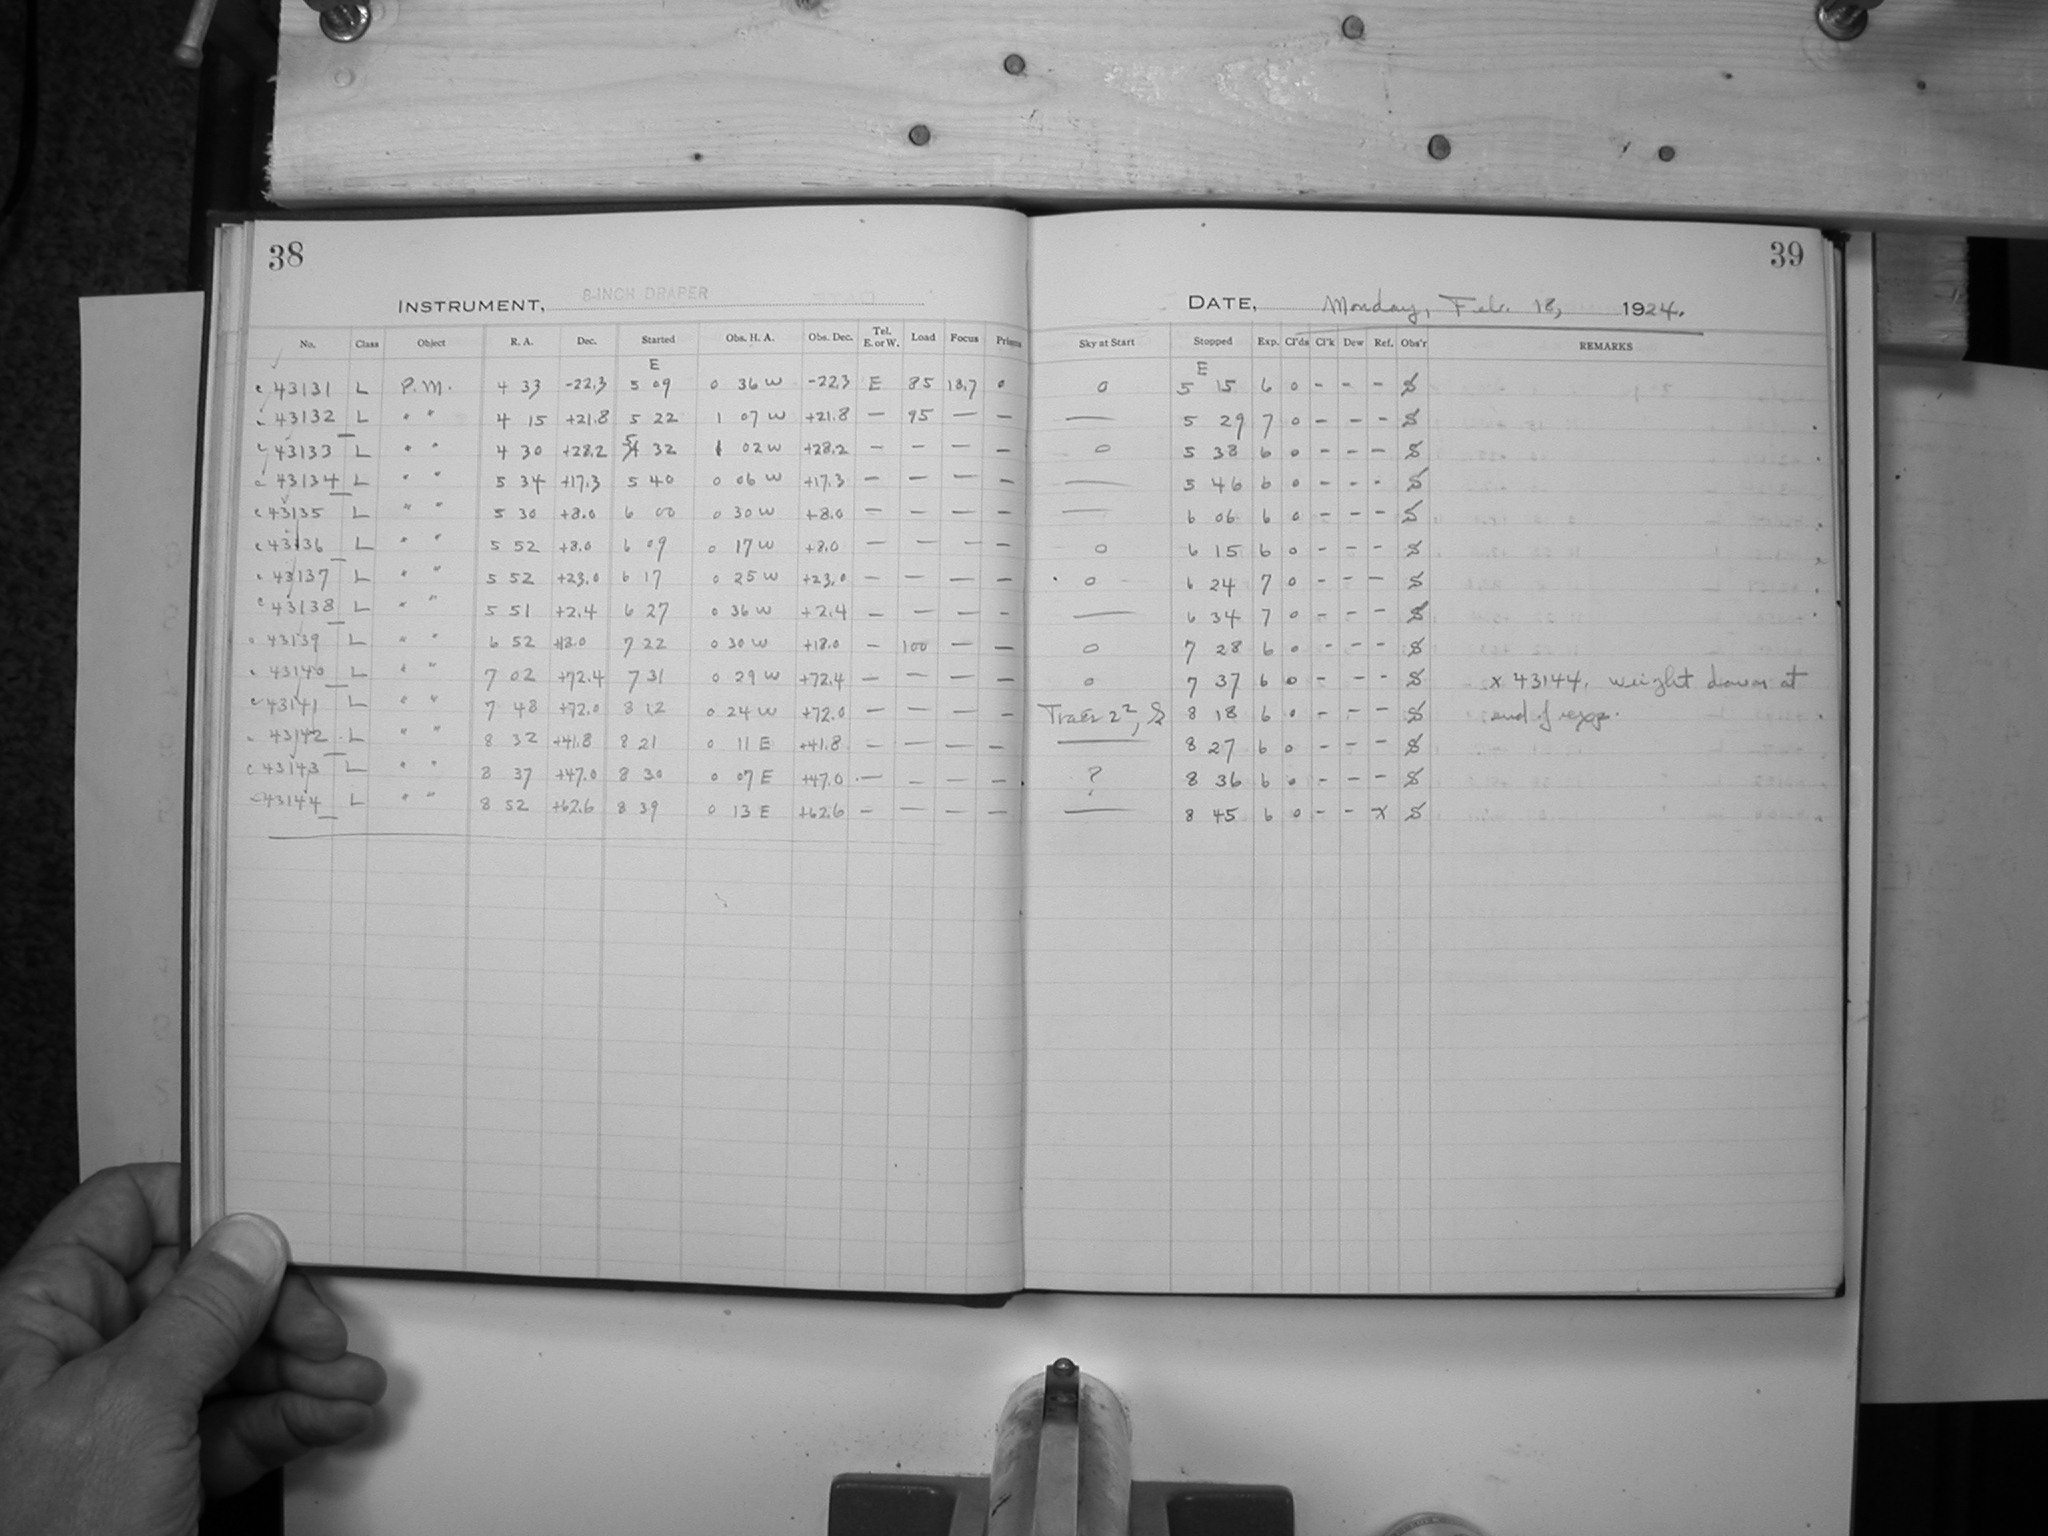 38
INSTRUMENT, 8-INCH DRAPER
No. Class Object R. A. Dec. Started Obs. H. A. Obs. Dec. Tel. E. or W. Load Focus Prisms
E
43131 L P.M. 4 33 -22.3 5 09 0 36 W -22.3 E 85 18.7 0
43132 L " " 4 15 +21.8 5 22 1 07 W +21.8 — 95 — —
43133 L " " 4 30 +28.2 5 32 1 02 W +28.2 — — — —
43134 L " " 5 34 +17.3 5 40 0 06 W +17.3 — — — —
43135 L " " 5 30 +8.0 6 00 0 30 W +8.0 — — — —
43136 L " " 5 52 +8.0 6 09 0 17 W +8.0 — — — —
43137 L " " 5 52 +23.0 6 17 0 25 W +23.0 — — — —
43138 L " " 5 51 +2.4 6 27 0 36 W +2.4 — — — —
43139 L " " 6 52 +18.0 7 22 0 30 W +18.0 — 100 — —
43140 L " " 7 02 +72.4 7 31 0 29 W +72.4 — — — —
43141 L " " 7 48 +72.0 8 12 0 24 W +72.0 — — — —
43142 L " " 8 32 +41.8 8 21 0 11 E +41.8 — — — —
43143 L " " 8 37 +47.0 8 30 0 07 E +47.0 — — — —
43144 L " " 8 52 +62.6 8 39 0 13 E +62.6 — — — —
39
DATE, Monday, Feb. 18, 1924.
Sky at Start Stopped Exp. Cl'ds Cl'k Dew Ref. Obs'r REMARKS
E
0 5 15 6 0 - - - S
— 5 29 7 0 - - - S
0 5 38 6 0 - - - S
— 5 46 6 0 - - - S
— 6 06 6 0 - - - S
0 6 15 6 0 - - - S
0 6 24 7 0 - - - S
— 6 34 7 0 - - - S
0 7 28 6 0 - - - S
0 7 37 6 0 - - - S x 43144. weight down at
8 18 6 0 - - - S end of exp.
— 8 27 6 0 - - - S
? 8 36 6 0 - - - S
— 8 45 6 0 - - x S